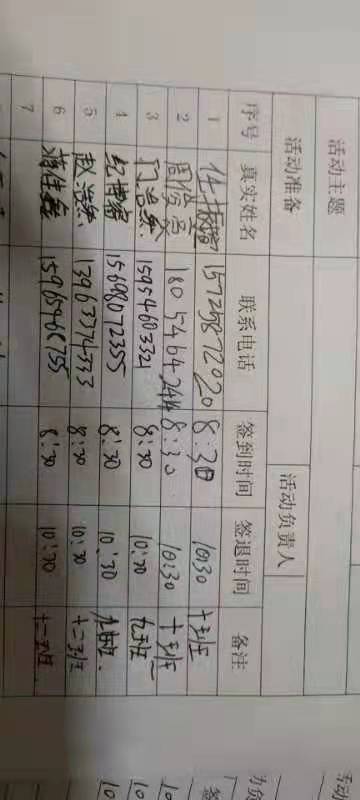 活动主题
活动准备 活动负责人
序号 真实姓名 联系电话 签到时间 签退时间 备注
1 任振蹬 15725872020 8:30 10:30 十班
2 周俊宫 18054642414 8:30 10:30 十班
3 门浩然 15954603321 8:30 10:30 九班
4 15698072355 8:30 10:30 九班
5 赵浩然 13963774533 8:30 10:30 十二班
6 15969460755 8:30 10:30 十一班
7